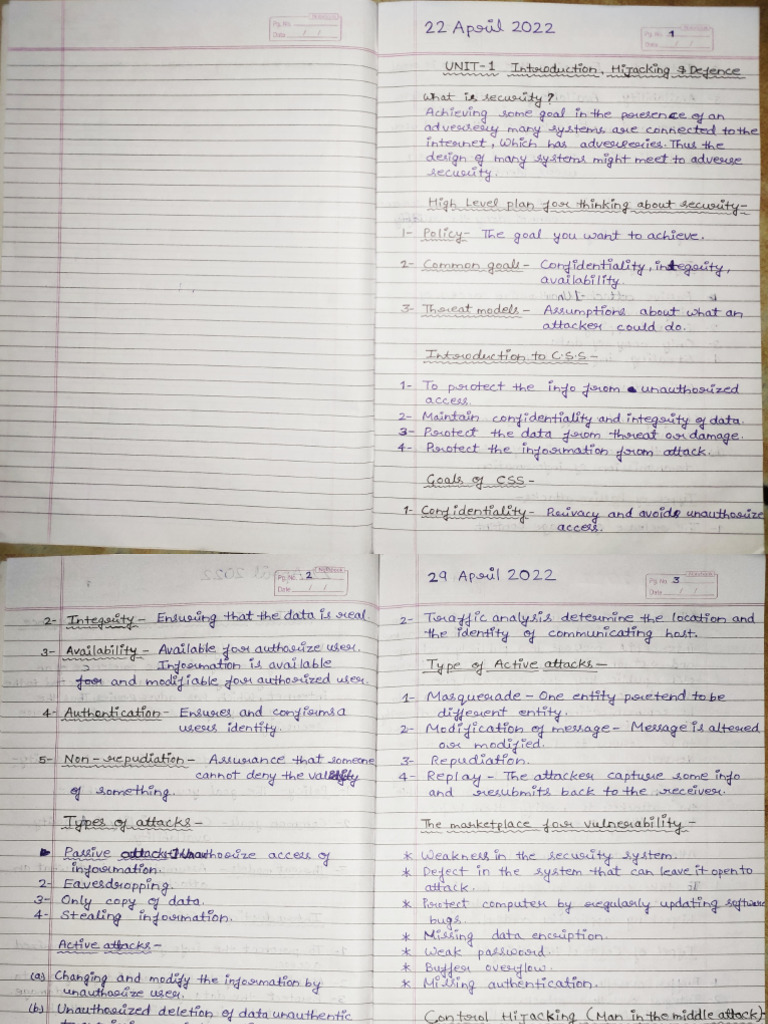 Pg. No.
Date / /
22 April 2022
Pg. No. 1
Date / /
UNIT-1 Introduction, Hijacking & Defence
What is security?
Achieving some goal in the presence of an
adversery many systems are connected to the
internet, Which has adverseries. Thus the
design of many systems might meet to adverse
security.
High Level plan for thinking about security-
1- Policy- The goal you want to achieve.
2- Common goals - Confidentiality, integrity,
availability.
3- Threat models - Assumptions about what an
attacker could do.
Introduction to C.S.S -
1- To protect the info from unauthorized
access.
2- Maintain confidentiality and integrity of data.
3- Protect the data from threat or damage.
4- Protect the information from attack.
Goals of CSS -
1- Confidentiality- Privacy and avoids unauthorize
access.
Pg. No. 2
Date / /
2- Integrity - Ensuring that the data is real.
3- Availability - Available for authorize user.
Information is available
for and modifiable for authorized user.
4- Authentication - Ensures and confirms a
users identity.
5- Non-repudiation - Assurance that someone
cannot deny the validity
of something.
Types of attacks -
Passive attack - Unauthorize access of
information.
2- Eavesdropping.
3- Only copy of data.
4- Stealing information.
Active attacks -
(a) Changing and modify the information by
unauthorize user.
(b) Unauthorized deletion of data unauthentic
29 April 2022
Pg. No. 3
Date / /
2- Traffic analysis determine the location and
the identity of communicating host.
Type of Active attacks -
1- Masquerade - One entity pretend to be
different entity.
2- Modification of message - Message is altered
or modified.
3- Repudiation.
4- Replay - The attacker capture some info
and resubmits back to the receiver.
The marketplace for vulnerability -
* Weakness in the security system.
* Defect in the system that can leave it open to
attack.
* Protect computer by regularly updating software
bugs.
* Missing data encription.
* Weak password.
* Buffer overflow.
* Missing authentication.
Control Hijacking (Man in the middle attack)-